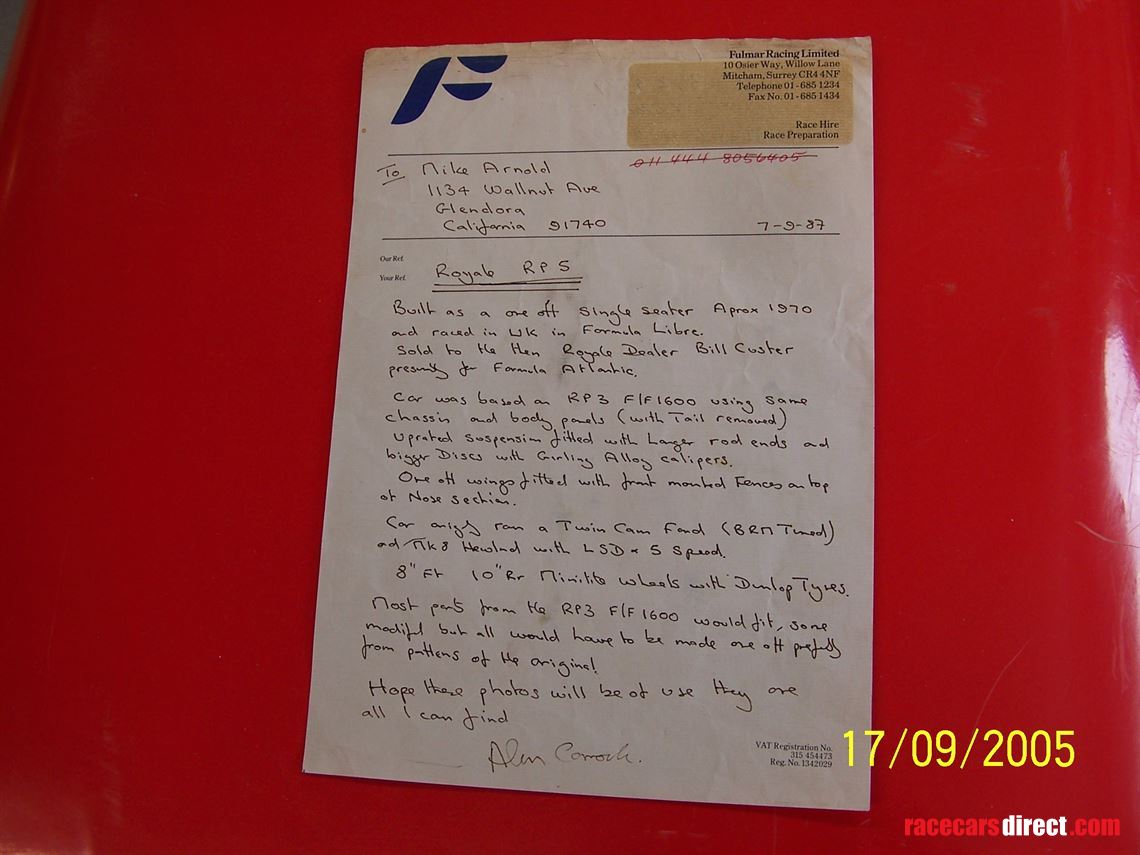 F
Fulmar Racing Limited
10 Osier Way, Willow Lane
Mitcham, Surrey CR4 4NF
Telephone 01-685 1234
Fax No. 01-685 1434
Race Hire
Race Preparation
011 444 8056405
To Mike Arnold
1134 Wallnut Ave
Glendora
California 91740
7-9-87
Our Ref.
Your Ref.
Royale RP5
Built as a one off single seater Aprox 1970
and raced in UK in Formula Libre.
Sold to the then Royale Dealer Bill Custer
for Formula Atlantic.
Car was based on RP3 F/F1600 using same
chassis and body panels (with Tail removed)
Uprated suspension fitted with Larger rod ends and
bigger Discs with Girling Alloy calipers.
One off wings fitted with front mounted Fences on top
of Nose section.
Car ran a Twin Cam Ford (BRM Tuned)
ad Mk8 Hewland with LSD x 5 Speed.
8" Ft 10" Rr Minilite wheels with Dunlop Tyres.
Most parts from the RP3 F/F1600 would fit, some
but all would have to be made one off
from of the original
Hope these photos will be of use they are
all I can find
Alan
VAT Registration No.
315 454473
Reg. No. 1342029
17/09/2005
racecarsdirect.com